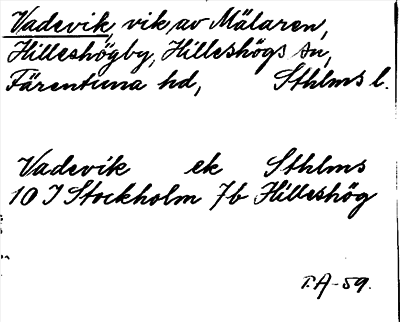 Vadevik, vik av Mälaren,
Hilleshögby, Hilleshögs sn,
Färentuna hd, Sthlms l.
Vadevik ek Sthlms
10 I Stockholm 7b Hilleshög
T.A-59.